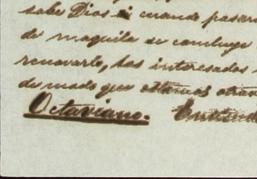 sabe Dios si cuando pasar
de maquila se concluye
renovarlo, los interesados
de modo que estamos atra
Octaviano. Entiend